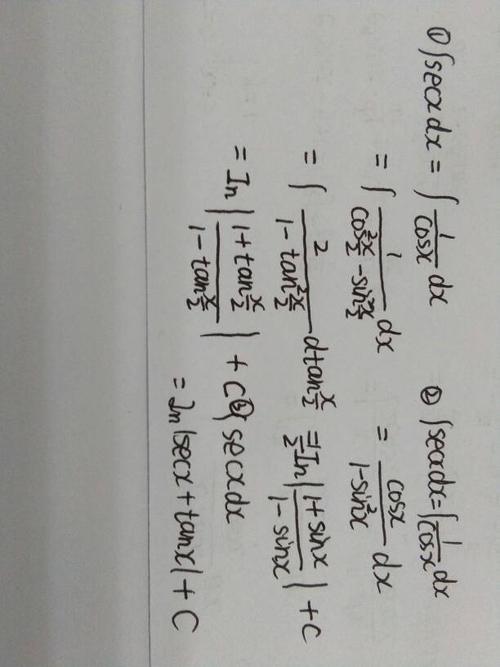 ① ∫secxdx = ∫ 1/cosx dx
= ∫ 1/(cos²x/2 - sin²x/2) dx
= ∫ 2/(1 - tan²x/2) dtanx/2
= In |(1 + tanx/2)/(1 - tanx/2)| + C
② ∫secxdx = ∫ 1/cosx dx
= cosx/(1-sin²x) dx
= 1/2 In |(1 + sinx)/(1 - sinx)| + C
③ ∫secxdx
= In |secx + tanx| + C